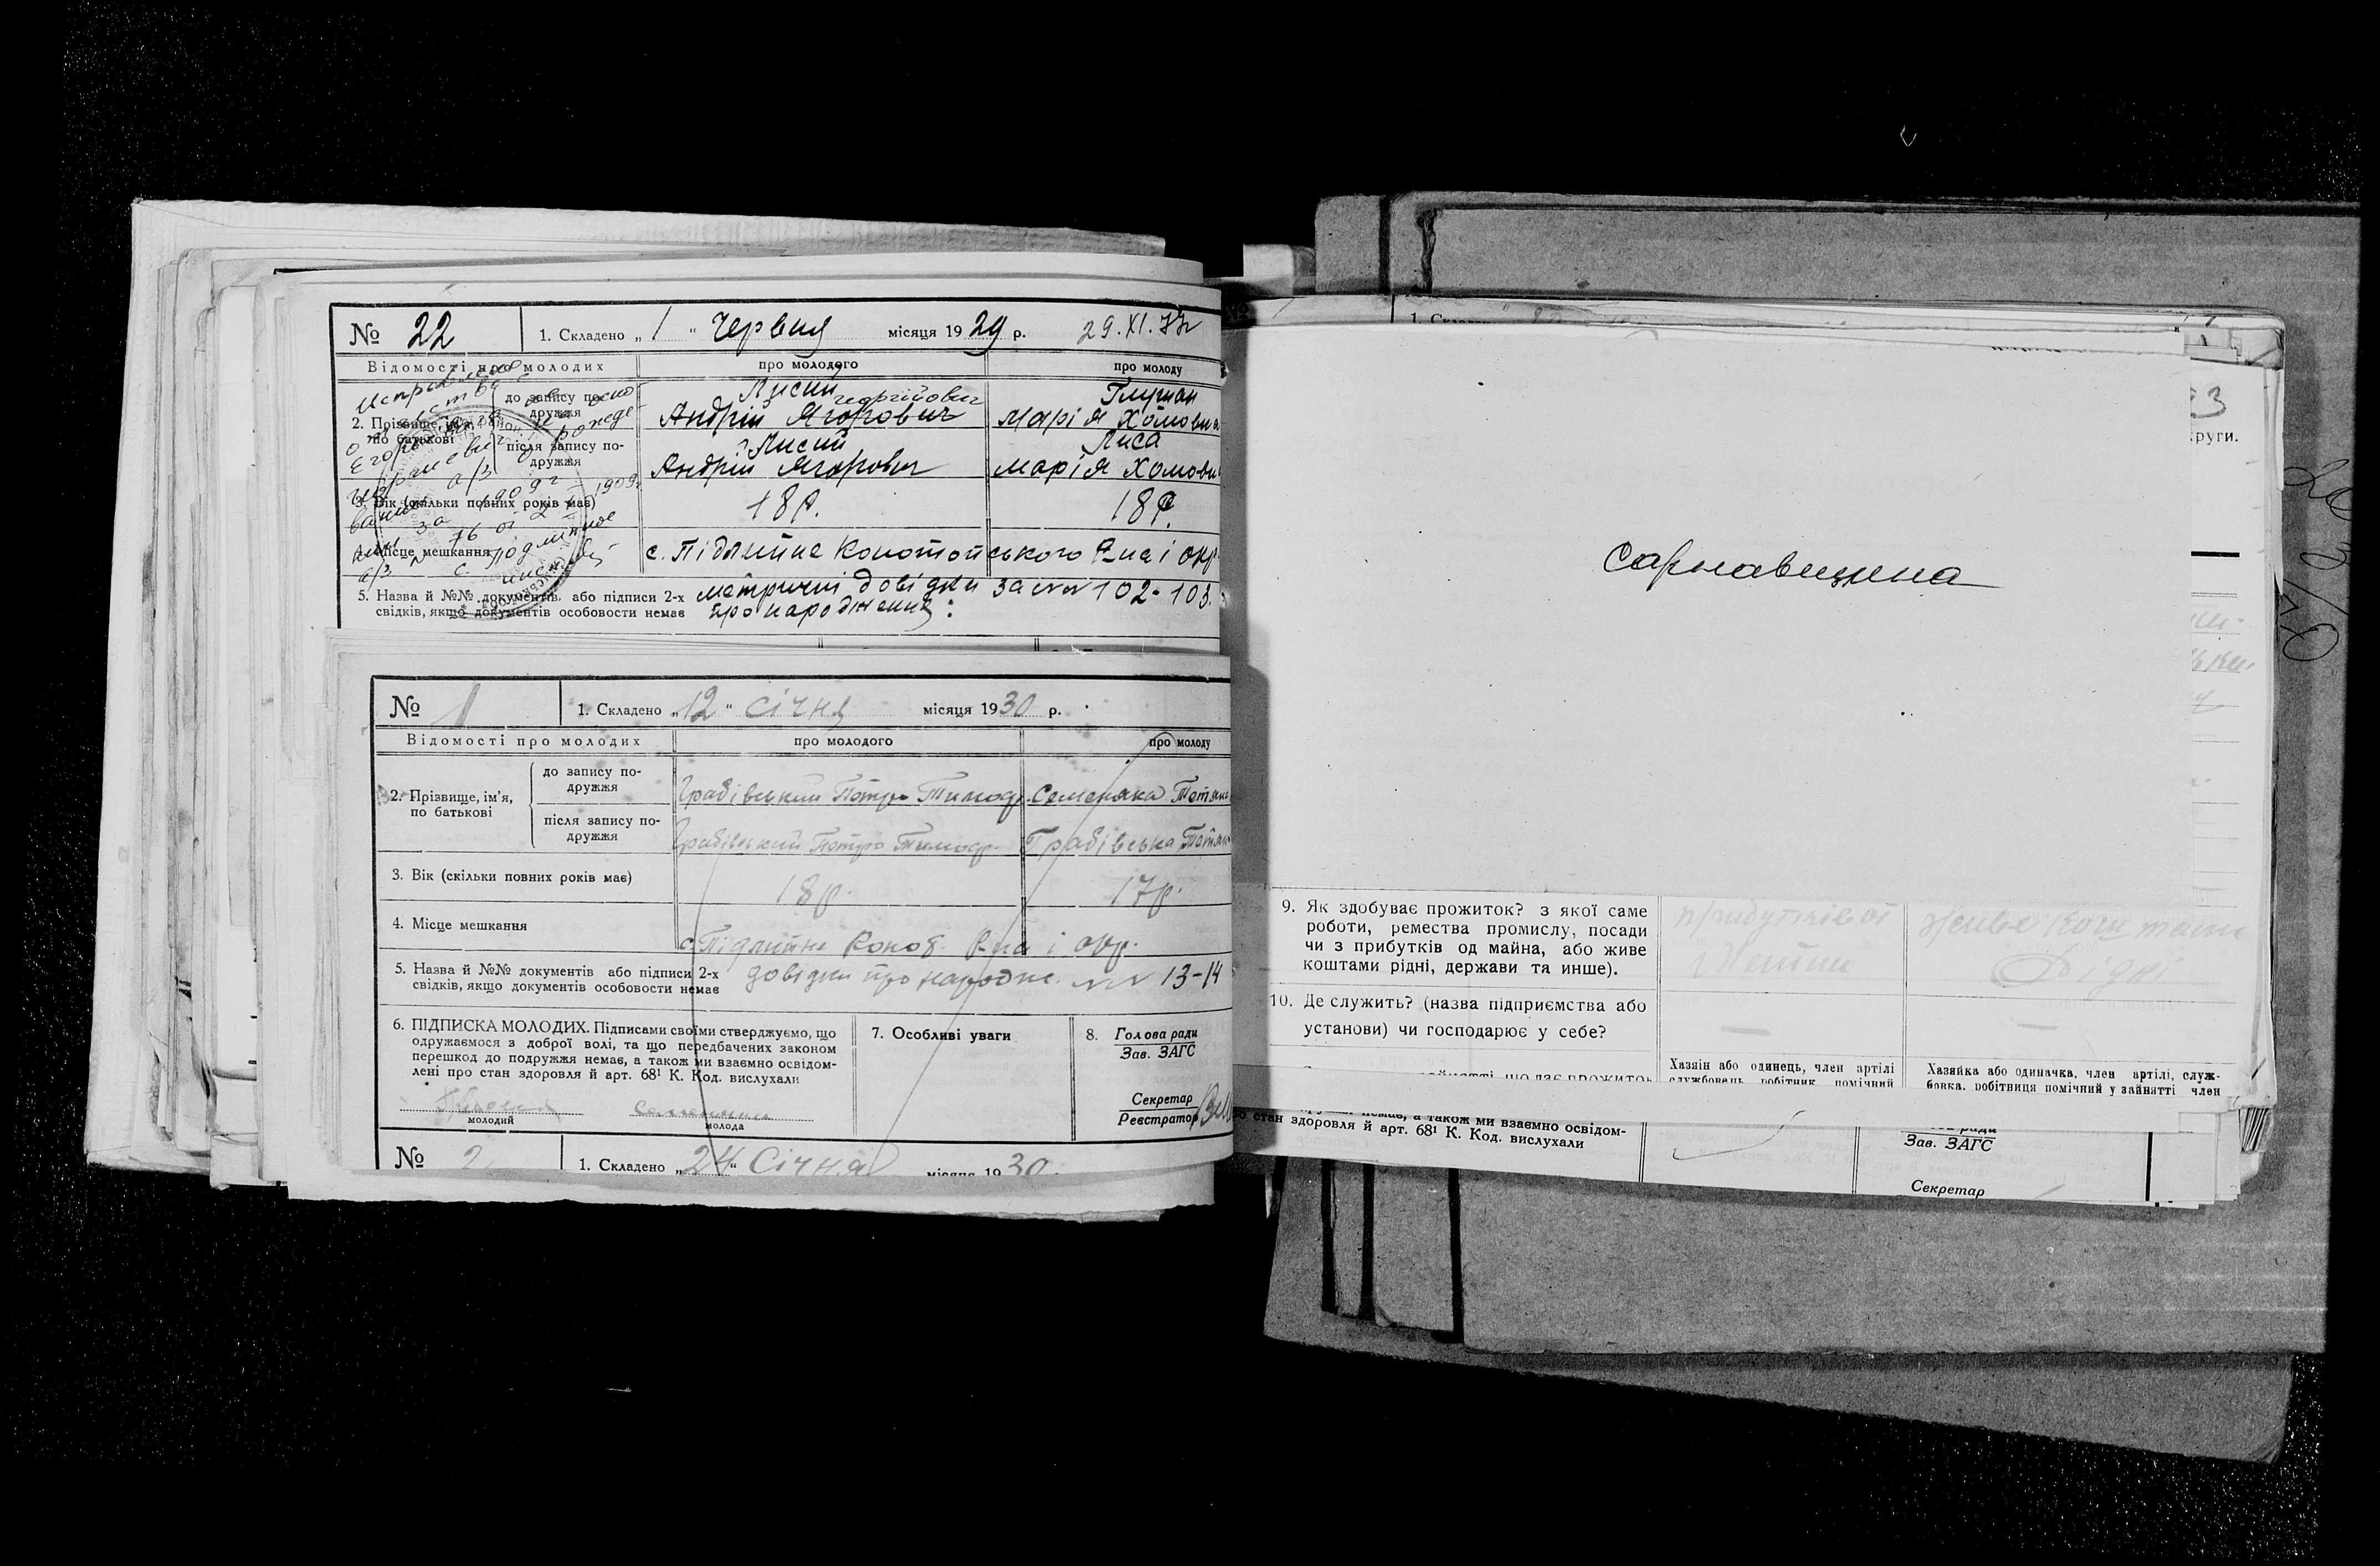 № 22 1. Складено „ 1 “ Червня місяця 1929 р. 29.XI.77г
Відомості про молодих про молодого про молоду
Лисий Глушан
до запису по-
дружжя
Георгійович
Андрій Ягорович Марія Хомовна
2. Прізвище, ім'я,
по батькові
Лисий Лиса
після запису по-
дружжя
Андрій Ягорович Марія Хомовн
3. Вік (скільки повних років має) 18 р. 18 р.
4. Місце мешкання с. Підлипне Конотопського Р-на і окр.
5. Назва й №№ документів або підписи 2-х метричні довідки за №№ 102-103.
свідків, якщо документів особовости немає про народження:
№ 1 1. Складено „ 12 “ Січня місяця 1930 р.
Відомості про молодих про молодого про молоду
до запису по-
дружжя
2. Прізвище, ім'я,
по батькові
Грабівський Петро Тимоф. Семеняка Тетяна
після запису по-
дружжя
Грабівський Петро Тимоф. Грабівська Тетяна
3. Вік (скільки повних років має) 18 р. 17 р.
4. Місце мешкання с. Підлипне Коноб. Р-на і окр.
5. Назва й №№ документів або підписи 2-х довідки про народж. №№ 13-14
свідків, якщо документів особовости немає
6. ПІДПИСКА МОЛОДИХ. Підписами своїми стверджуємо, що
одружаємося з доброї волі, та що передбачених законом
перешкод до подружжя немає, а також ми взаємно освідом-
лені про стан здоровля й арт. 68¹ К. Код. вислухали
молодий молода
7. Особливі уваги
8. Голова ради
Зав. ЗАГС
Секретар
Реєстратор
№ 2 1. Складено „ 24 “ Січня місяця 1930
1. Складено
руги.
Сарнавщина
9. Як здобуває прожиток? з якої саме
роботи, ремества промислу, посади
чи з прибутків од майна, або живе
коштами рідні, держави та инше).
живе коштами
Рідні
10. Де служить? (назва підприємства або
установи) чи господарює у себе?
— —
Хазяїн або одинець, член артілі
службовець робітник помічний
Хазяйка або одиначка, член артілі, служ-
бовка, робітниця помічний у зайнятті член
немає, а також ми взаємно освідом-
стан здоровля й арт. 68¹ К. Код. вислухали
Зав. ЗАГС
Секретар